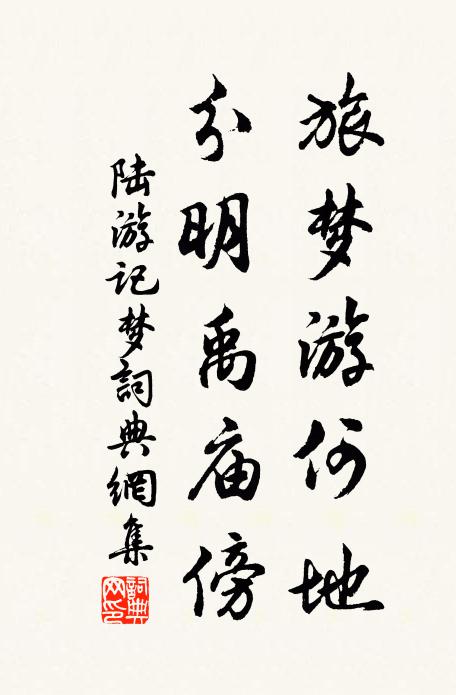 旅梦游何地
分明禹庙傍
陆游记梦詞典網集
詞典网印